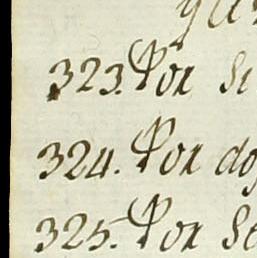 323. Por si
324. Por do
325. Por se